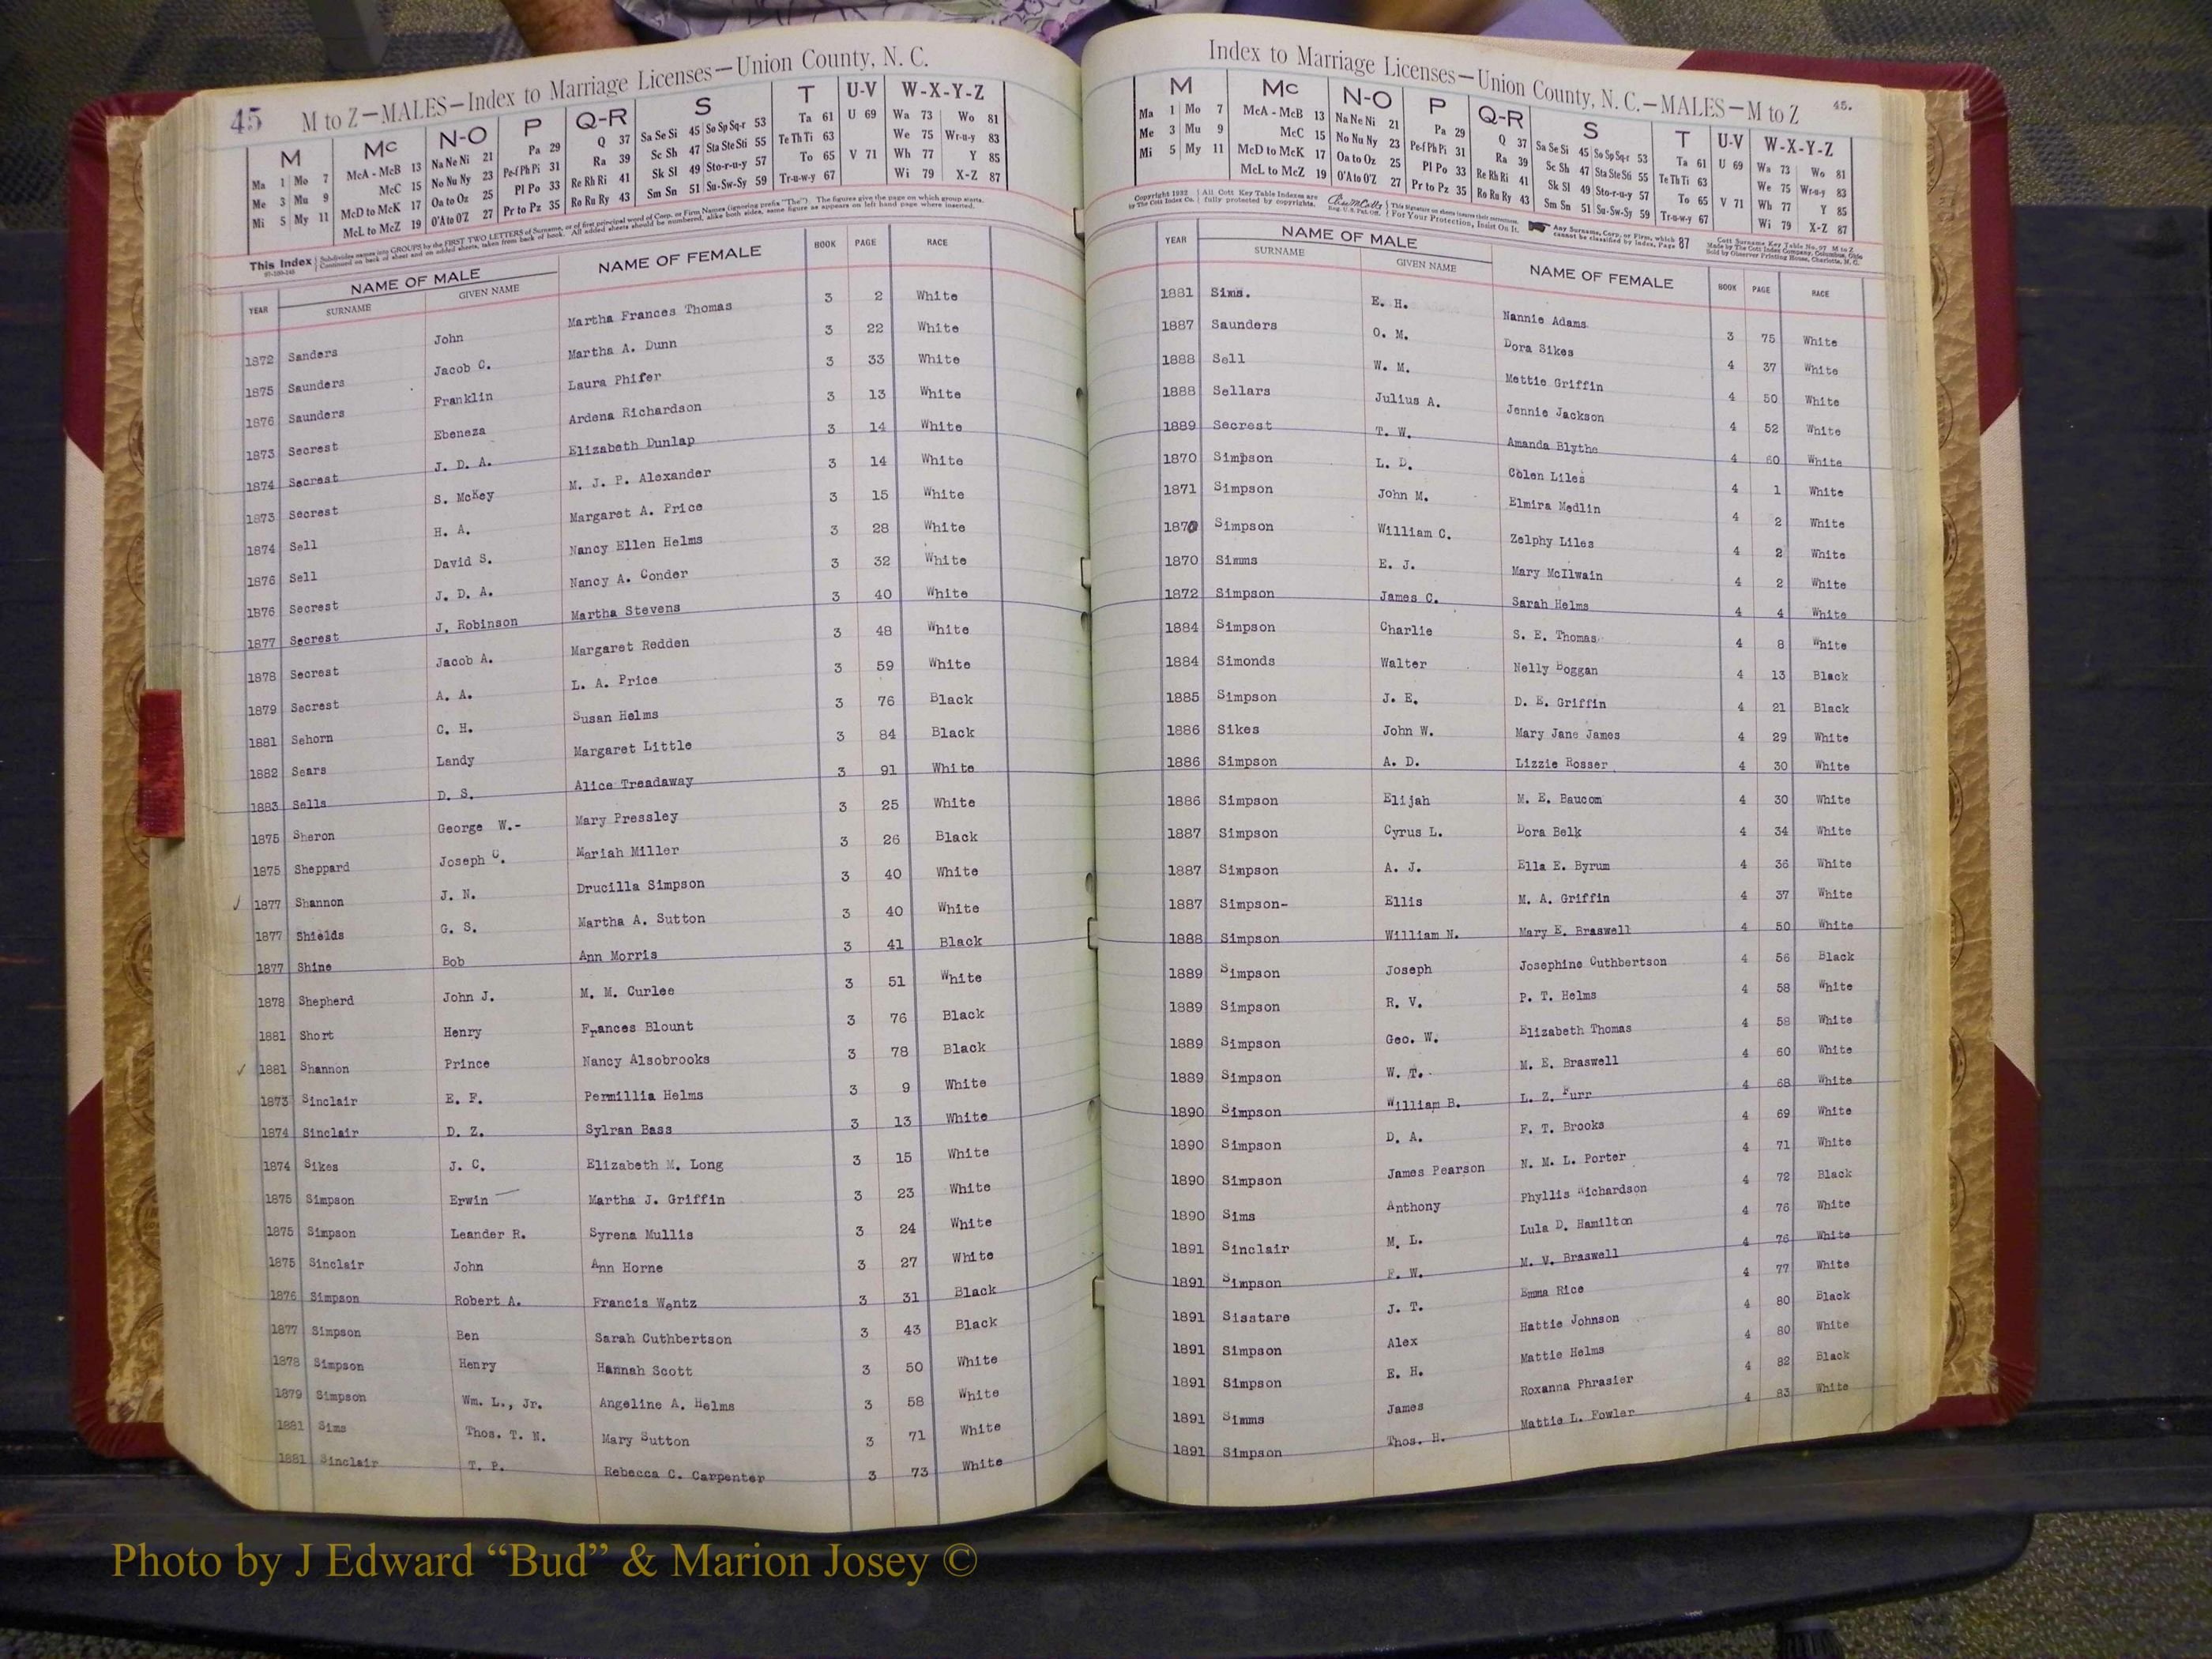 45
M to Z—MALES—Index to Marriage Licenses—Union County, N. C.
M Mc N-O P Q-R S T U-V W-X-Y-Z
Ma 1 Mo 7 McA - McB 13 Na Ne Ni 21 Pa 29 Q 37 Sa Se Si 45 So Sp Sq-r 53 Ta 61 U 69 Wa 73 Wo 81
Me 3 Mu 9 McC 15 No Nu Ny 23 Pe-f Ph Pi 31 Ra 39 Sc Sh 47 Sta Ste Sti 55 Te Th Ti 63 We 75 Wr-u-y 83
Mi 5 My 11 McD to McK 17 Oa to Oz 25 Pl Po 33 Re Rh Ri 41 Sk Sl 49 Sto-r-u-y 57 To 65 V 71 Wh 77 Y 85
McL to McZ 19 O'A to O'Z 27 Pr to Pz 35 Ro Ru Ry 43 Sm Sn 51 Su-Sw-Sy 59 Tr-u-w-y 67 Wi 79 X-Z 87
This Index Subdivides names into GROUPS by the FIRST TWO LETTERS of Surname, or of first principal word of Corp. or Firm Names (ignoring prefix "The"). The figures give the page on which group starts.
Continued on back of sheet and on added sheets, taken from back of book. All added sheets should be numbered, alike both sides, same figure as appears on left hand page where inserted.
YEAR NAME OF MALE NAME OF FEMALE BOOK PAGE RACE
SURNAME GIVEN NAME
1872 Sanders John Martha Frances Thomas 3 2 White
1875 Saunders Jacob C. Martha A. Dunn 3 22 White
1876 Saunders Franklin Laura Phifer 3 33 White
1873 Secrest Ebeneza Ardena Richardson 3 13 White
1874 Secrest J. D. A. Elizabeth Dunlap 3 14 White
1873 Secrest S. McKey M. J. P. Alexander 3 14 White
1874 Sell H. A. Margaret A. Price 3 15 White
1876 Sell David S. Nancy Ellen Helms 3 28 White
1876 Secrest J. D. A. Nancy A. Conder 3 32 White
1877 Secrest J. Robinson Martha Stevens 3 40 White
1878 Secrest Jacob A. Margaret Redden 3 48 White
1879 Secrest A. A. L. A. Price 3 59 White
1881 Sehorn C. H. Susan Helms 3 76 Black
1882 Sears Landy Margaret Little 3 84 Black
1883 Sells D. S. Alice Treadaway 3 91 White
1875 Sheron George W.- Mary Pressley 3 25 White
1875 Sheppard Joseph C. Mariah Miller 3 26 Black
✓ 1877 Shannon J. N. Drucilla Simpson 3 40 White
1877 Shields G. S. Martha A. Sutton 3 40 White
1877 Shine Bob Ann Morris 3 41 Black
1878 Shepherd John J. M. M. Curlee 3 51 White
1881 Short Henry Frances Blount 3 76 Black
✓ 1881 Shannon Prince Nancy Alsobrooks 3 78 Black
1873 Sinclair E. F. Permillia Helms 3 9 White
1874 Sinclair D. Z. Sylran Bass 3 13 White
1874 Sikes J. C. Elizabeth M. Long 3 15 White
1875 Simpson Erwin Martha J. Griffin 3 23 White
1875 Simpson Leander R. Syrena Mullis 3 24 White
1875 Sinclair John Ann Horne 3 27 White
1876 Simpson Robert A. Francis Wentz 3 31 Black
1877 Simpson Ben Sarah Cuthbertson 3 43 Black
1878 Simpson Henry Hannah Scott 3 50 White
1879 Simpson Wm. L., Jr. Angeline A. Helms 3 58 White
1881 Sims Thos. T. N. Mary Sutton 3 71 White
1881 Sinclair T. P. Rebecca C. Carpenter 3 73 White
Index to Marriage Licenses—Union County, N. C.—MALES—M to Z
45.
M Mc N-O P Q-R S T U-V W-X-Y-Z
Ma 1 Mo 7 McA - McB 13 Na Ne Ni 21 Pa 29 Q 37 Sa Se Si 45 So Sp Sq-r 53 Ta 61 U 69 Wa 73 Wo 81
Me 3 Mu 9 McC 15 No Nu Ny 23 Pe-f Ph Pi 31 Ra 39 Sc Sh 47 Sta Ste Sti 55 Te Th Ti 63 We 75 Wr-u-y 83
Mi 5 My 11 McD to McK 17 Oa to Oz 25 Pl Po 33 Re Rh Ri 41 Sk Sl 49 Sto-r-u-y 57 To 65 V 71 Wh 77 Y 85
McL to McZ 19 O'A to O'Z 27 Pr to Pz 35 Ro Ru Ry 43 Sm Sn 51 Su-Sw-Sy 59 Tr-u-w-y 67 Wi 79 X-Z 87
Copyright 1932 by The Cott Index Co. All Cott Key Table Indexes are fully protected by copyrights. Reg. U. S. Pat. Off. For Your Protection, Insist On It. Any Surname, Corp. or Firm, which cannot be classified by Index, Page 87
Cott Surname Key Table No. 97 M to Z
Made by The Cott Index Company, Columbus, Ohio
Sold by Observer Printing House, Charlotte, N. C.
YEAR NAME OF MALE NAME OF FEMALE BOOK PAGE RACE
SURNAME GIVEN NAME
1881 Sims. E. H. Nannie Adams 3 75 White
1887 Saunders O. M. Dora Sikes 4 37 White
1888 Sell W. M. Mettie Griffin 4 50 White
1888 Sellars Julius A. Jennie Jackson 4 52 White
1889 Secrest T. W. Amanda Blythe 4 60 White
1870 Simpson L. D. Colen Liles 4 1 White
1871 Simpson John M. Elmira Medlin 4 2 White
1870 Simpson William C. Zelphy Liles 4 2 White
1870 Simms E. J. Mary McIlwain 4 2 White
1872 Simpson James C. Sarah Helms 4 4 White
1884 Simpson Charlie S. E. Thomas 4 8 White
1884 Simonds Walter Nelly Boggan 4 13 Black
1885 Simpson J. E. D. E. Griffin 4 21 Black
1886 Sikes John W. Mary Jane James 4 29 White
1886 Simpson A. D. Lizzie Rosser 4 30 White
1886 Simpson Elijah M. E. Baucom 4 30 White
1887 Simpson Cyrus L. Dora Belk 4 34 White
1887 Simpson A. J. Ella E. Byrum 4 36 White
1887 Simpson- Ellis M. A. Griffin 4 37 White
1888 Simpson William N. Mary E. Braswell 4 50 White
1889 Simpson Joseph Josephine Cuthbertson 4 56 Black
1889 Simpson R. V. P. T. Helms 4 58 White
1889 Simpson Geo. W. Elizabeth Thomas 4 58 White
1889 Simpson W. T. M. E. Braswell 4 60 White
1890 Simpson William B. L. Z. Furr 4 68 White
1890 Simpson D. A. F. T. Brooks 4 69 White
1890 Simpson James Pearson N. M. L. Porter 4 71 White
1890 Sims Anthony Phyllis Richardson 4 72 Black
1891 Sinclair M. L. Lula D. Hamilton 4 76 White
1891 Simpson F. W. M. V. Braswell 4 76 White
1891 Sisstare J. T. Emma Rice 4 77 White
1891 Simpson Alex Hattie Johnson 4 80 Black
1891 Simpson E. H. Mattie Helms 4 80 White
1891 Simms James Roxanna Phrasier 4 82 Black
1891 Simpson Thos. H. Mattie L. Fowler 4 83 White
Photo by J Edward “Bud” & Marion Josey ©